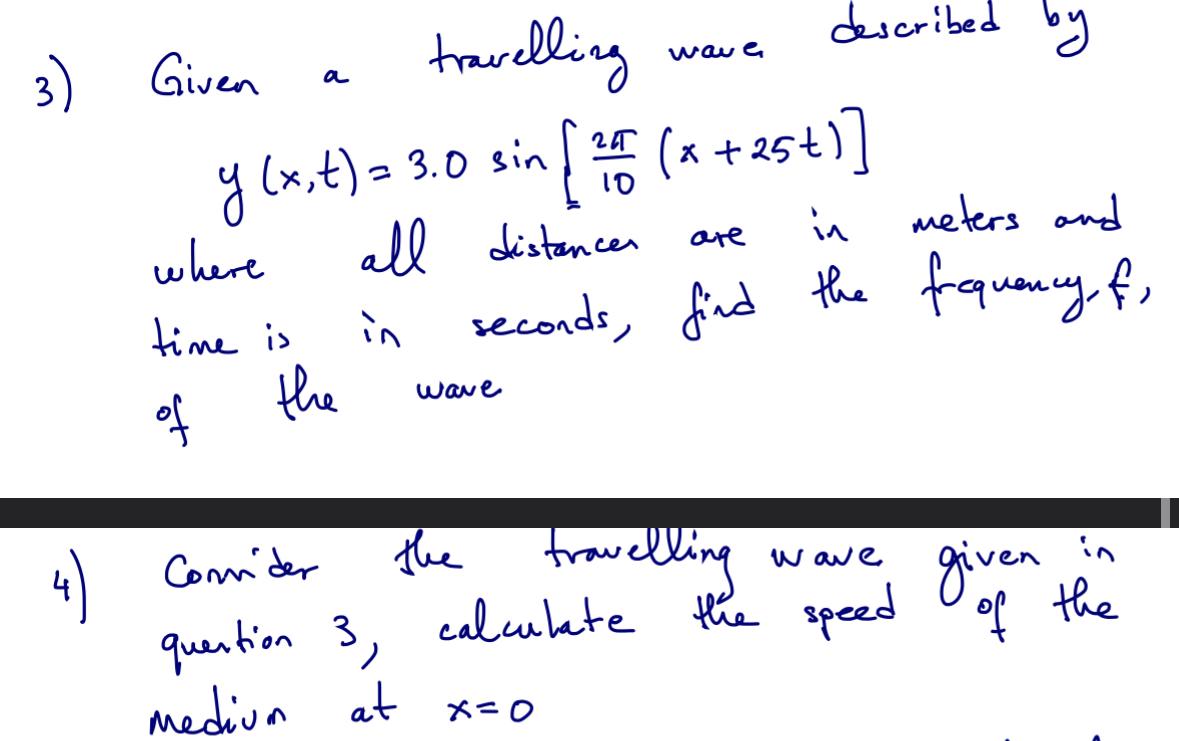 3) Given a travelling wave described by
y(x,t) = 3.0 sin [ 2π/10 (x + 25t) ]
where all distances are in meters and
time is in seconds, find the frequency, f,
of the wave
4) Consider the travelling wave given in
question 3, calculate the speed of the
medium at x=0